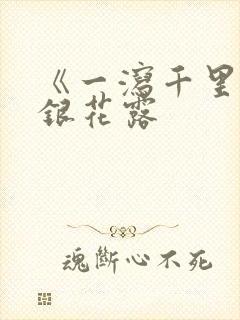 《一瀉千里
銀花露
魂斷心不死